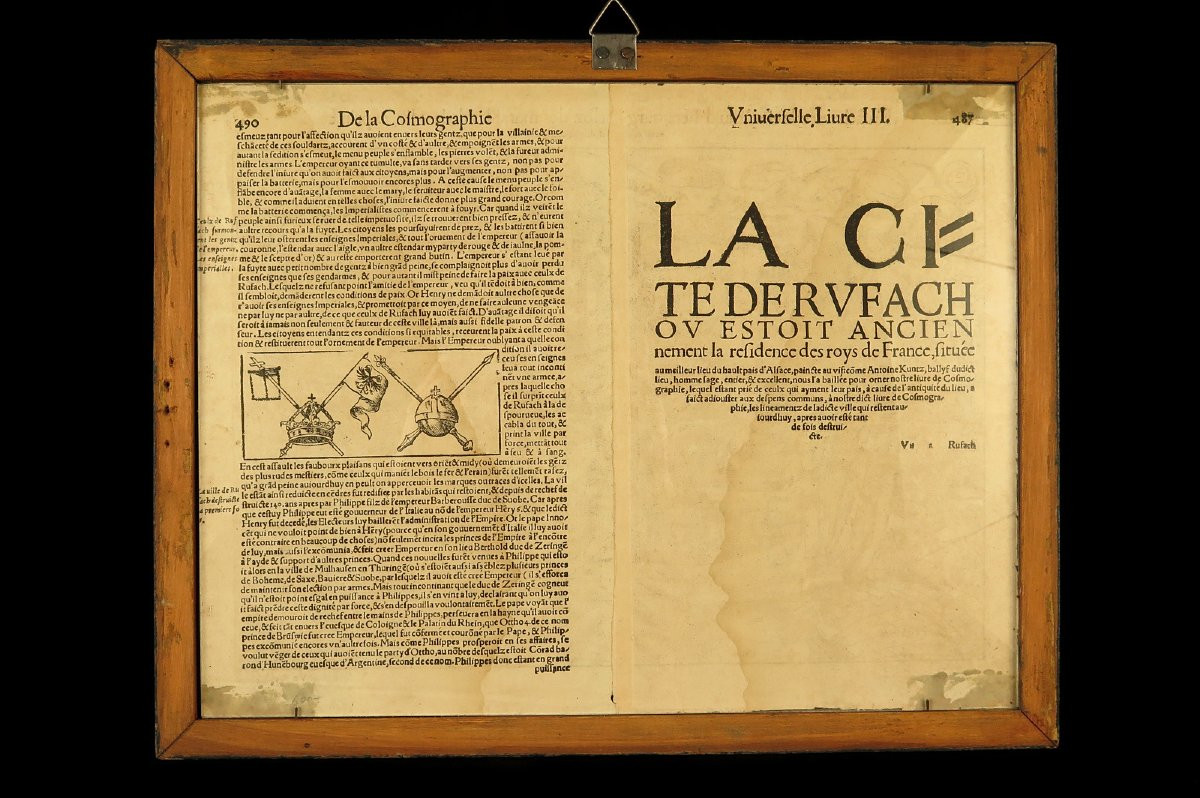 490
De la Cosmographie
esmeuz tant pour l'affection qu'ilz auoient enuers leurs gentz, que pour la villainie & me-
schãceté de ces souldartz, accourent d'vn costé & d'aultre, & empoignẽt les armes, & pour
autant la sedition s'esmeut, le menu peuple s'enflamble, les pierres volẽt, & la fureur admi-
nistre les armes. L'empereur oyant ce tumulte, va sans tarder vers ses gentz, non pas pour
defendre l'iniure qu'on auoit faict aux citoyens, mais pour l'augmenter, non pas pour ap-
paiser la batterie, mais pour l'esmouuoir encores plus. A ceste cause le menu peuple s'en-
flãbe encore d'auãtage, la femme auec le mary, le seruiteur auec le maistre, le fort auec le foi-
ble, & comme il aduient en telles choses, l'iniure faicte donne plus grand courage. Or com
me la batterie commença, les Imperialistes commencerent à fouyr. Car quand ilz veirẽt le
peuple ainsi furieux se ruer de telle impetuosité, ilz se trouuerent bien pressez, & n'eurent
aultre recours qu'a la fuyte. Les citoyens les poursuyuirent de prez, & les battirent si bien
qu'ilz leur osterent les enseignes Imperiales, & tout l'ornement de l'empereur (assauoir la
couronne, l'estendar auec l'aigle, vn aultre estendar myparty de rouge & de iaulne, la pom-
me & le sceptre d'or) & au reste emporterent grand butin. L'empereur s'estant seue par
la fuyte auec petit nombre de gentz à bien grãd peine, se complaignoit plus d'auoir perdu
ses enseignes que ses gendarmes, & pour autant il mist peine de faire la paix auec ceulx de
Rufach. Lesquelz ne refusant point l'amitie de l'empereur, veu qu'il tẽdoit à bien, comme
il sembloit, demãderent les conditions de paix. Or Henry ne demãdoit aultre chose que de
r'auoir ses enseignes Imperiales, & promettoit par ce moyen, de ne faire aulcune vengeãce
ne par luy ne par aultre, de ce que ceulx de Rufach luy auoiẽt faict. D'auãtage il disoit qu'il
seroit à iamais non seulement & fauteur de ceste ville là, mais aussi fidelle patron & defen
seur. Les citoyens entendantz ces conditions si equitables, receurent la paix à ceste condi
tion & restituerent tout l'ornement de l'empereur. Mais l'Empereur oublyant a quelle con
dition il auoit re-
ceu ses enseignes
leua tout inconti
nẽt vne armee, a-
pres laquelle cho
se il surprit ceulx
de Rufach à la de
spourueue, les ac
cabla du tout, &
print la ville par
force, mettãt tout
à feu & à sang.
En cest assault les faubourx plaisans qui estoient vers oriẽt & midy (où demeuroiẽt les gẽtz
des plus rudes mestiers, cõme ceulx qui maniẽt le bois le fer & l'erain) furẽt tellemẽt rasez,
qu'a grãd peine auiourdhuy en peult on apperceuoir les marques ou traces d'icelles. La vil
le estãt ainsi reduicte en cẽdres fut redifiee par les habitãs qui restoient, & depuis de rechef de
struicte 140. ans apres par Philippe filz de l'empereur Barberousse duc de Suobe. Car apres
que cestuy Philippe eut esté gouuerneur de l'Italie au nõ de l'empereur Hẽry 6. & que ledict
Henry fut decedé, les Electeurs luy baillerẽt l'administration de l'Empire. Or le pape Inno-
cẽt qui ne vouloit point de bien à Hẽry (pource qu'en son gouuernemẽt d'Italie il luy auoit
esté contraire en beaucoup de choses) nõ seulemẽt incita les princes de l'Empire à l'encõtre
de luy, mais aussi l'excõmunia, & feit creer Empereur en son lieu Berthold duc de Zeringẽ
à l'ayde & support d'aultres princes. Quand ces nouuelles furẽt venues à Philippe qui esto
it alors en la ville de Mulhausen en Thuringẽ (où s'estoiẽt aussi assẽblez plusieurs princes
de Boheme, de Saxe, Bauiere & Suobe, par lesquelz il auoit esté cree Empereur) il s'efforca
de maintenir son election par armes. Mais tout incontinant que le duc de Zeringẽ cogneut
qu'il n'estoit point esgal en puissance à Philippes, il s'en vint a luy, declairãnt qu'on luy auo
it faict prẽdre ceste dignité par force, & s'en despouilla voulontairemẽt. Le pape voyãt que l'
empire demouroit de rechef entre le mains de Philippes, perseuera en la hayne qu'il auoit cõ
ceue, & feit tãt enuers l'euesque de Coloigne & le Palatin du Rhein, que Ottho 4. de ce nom
prince de Brũsvvic fut cree Empereur, lequel fut cõfermé & courõné par le Pape, & Philip-
pes excõmunié encores vn aultre fois. Mais cõme Philippes prosperoit en ses affaires, se
voulut vẽger de ceux qui auoiẽt tenu le party d'Ottho, au nõbre desquelz estoit Cõrad ba-
rond'Hunẽbourg euesque d'Argentine, second de ce nom. Philippes donc estant en grand
puissance
Ceulx de Ruf
ach surmon-
tent les gentz
de l'empereur.
Les enseignes
imperiales.
La ville de Ru
fach destruicte
la premiere fo
is.
Vniuerselle, Liure III.
487
LA CI=
TE DE RVFACH
OV ESTOIT ANCIEN
nement la residence des roys de France, située
au meilleur lieu du hault pais d'Alsace, paincte au vif cõme Antoine Kuntz, ballyf dudict
lieu, homme sage, entier, & excellent, nous l'a baillée pour orner nostre liure de Cosmo-
graphie, lequel estant prié de ceulx qui ayment leur pais, à cause de l'antiquité du lieu, a
faict adiouster aux despens communs, à nostre dict liure de Cosmogra-
phie, les lineamentz de ladicte ville qui restent au-
iourdhuy, apres auoir esté tant
de fois destrui-
cte.
Rufach